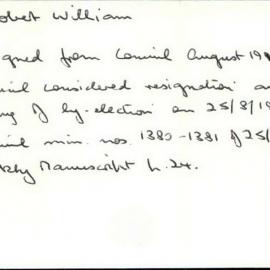 Robert William
igned from Council August 19
cil considered resignation a
ng of by-election on 25/8/19
cil min. nos. 1380-1381 of 25/
Manuscript h.24.